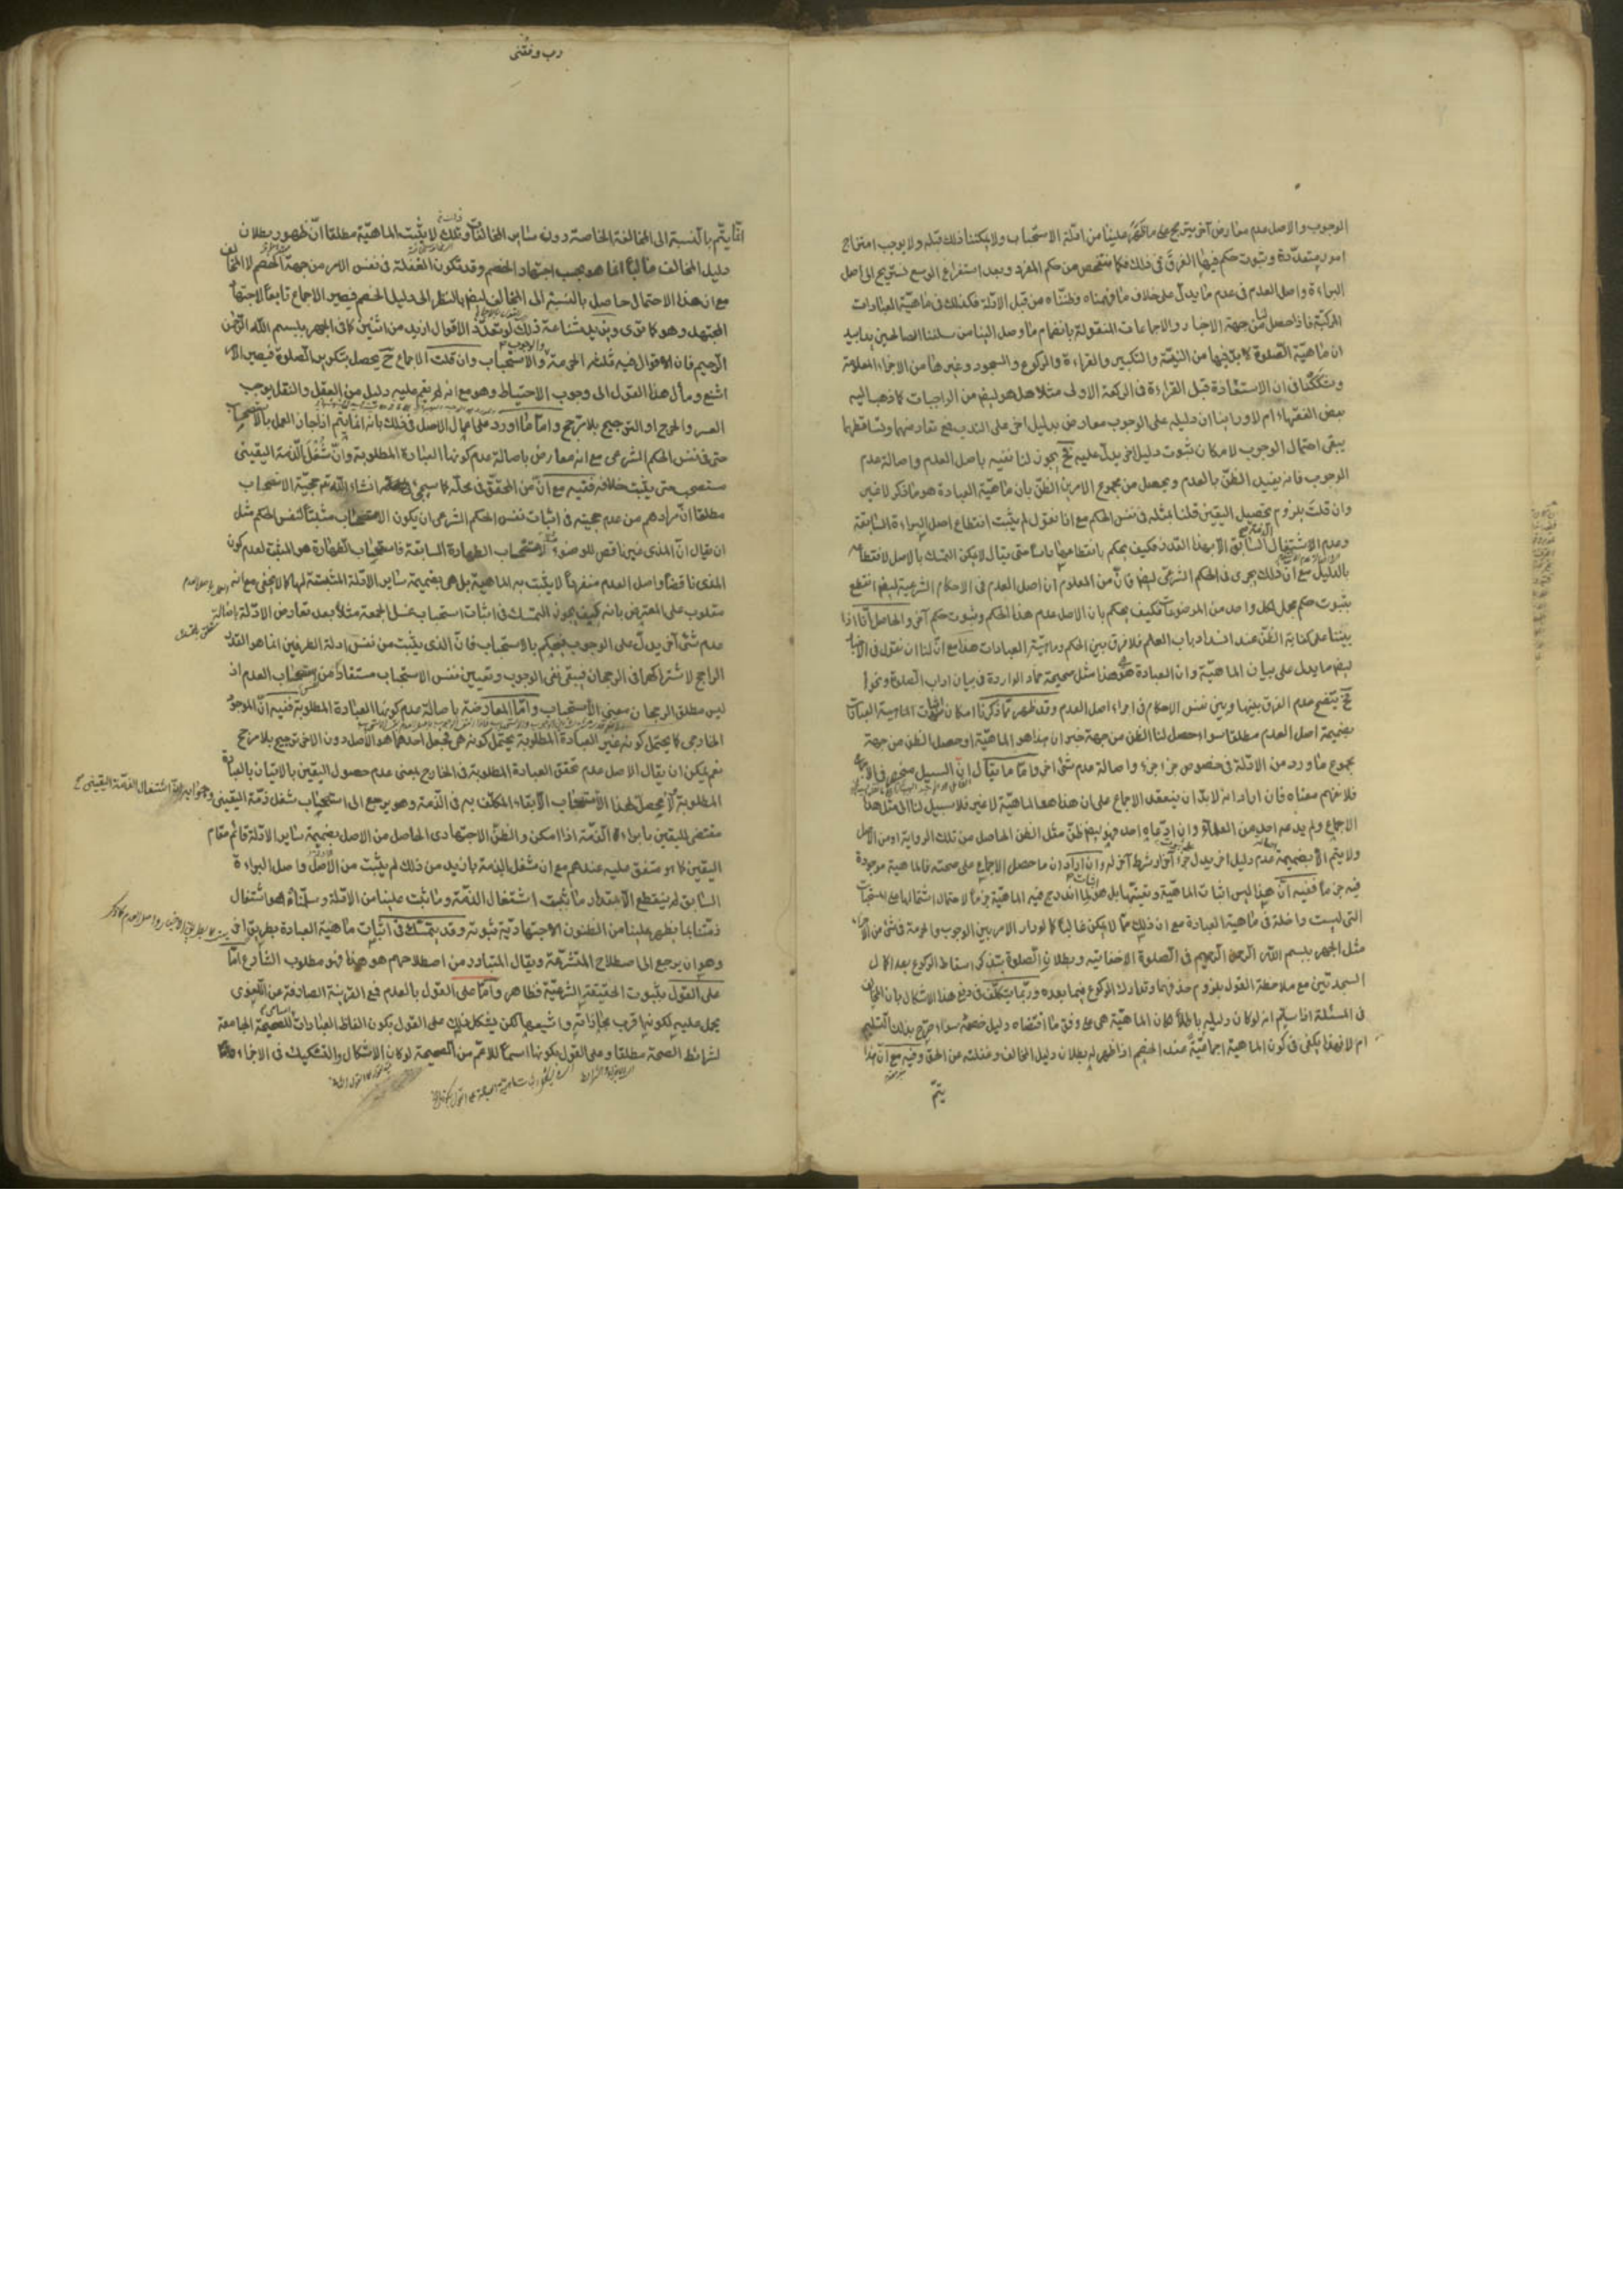 الوجوب والاصل عدم معارض آخر يترجح على ما ظهر علينا من ادلة الاستحباب ولا يمكننا ذلك قبله ولا يوجب امتزاج
امور متعددة وثبوت حكم فيها الفرق فى ذلك فكما نتفحص عن حكم المفرد وبعد استفراغ الوسع نستريح الى اصل
البراءة واصل العدم فى عدم ما يدل على خلاف ما فهمناه وظنناه من قبل الادلة فكذلك فى ماهية العبادات
المركبة فاذا حصل لنا من جهة الاخبار والاجماعات المنقولة بانضمام ما وصل الينا من سلفنا الصالحين يدا بيد
ان ماهية الصلوة لا بد فيها من النية والتكبير والقراءة والركوع والسجود وغيرها من الاجزاء المعلومة
وشككنا فى ان الاستعاذة قبل القراءة فى الركعة الاولى مثلا هل هو ايضا من الواجبات كما ذهب اليه
بعض الفقهاء ام لا وراينا ان دليله على الوجوب معارض بدليل اخر على الندب فمع تعارضهما وتساقطهما
يبقى احتمال الوجوب لامكان ثبوت دليل اخر يدل عليه فح يجوز لنا نفيه باصل العدم واصالة عدم
الوجوب فانه يفيد الظن بالعدم ويحصل من مجموع الامرين الظن بان ماهية العبادة هو ما ذكر لا غير
وان قلت بلزوم تحصيل اليقين قلنا بمثله فى نفس الحكم مع انا نقول لم يثبت انقطاع اصل البراءة السابقة
وعدم الاشتغال السابق الا بهذا القدر فكيف يحكم بانقطاعها راسا حتى يقال لا يمكن التمسك بالاصل لانقطاعه
بالدليل مع ان ذلك يجرى فى الحكم الشرعى ايضا فان من المعلوم ان اصل العدم فى الاحكام الشرعية ايضا انقطع
بثبوت حكم مجمل لكل واحد من الموضوعات فكيف يحكم بان الاصل عدم هذا الحكم وثبوت حكم آخر والحاصل انا اذا
بنينا على كفاية الظن عند انسداد باب العلم فلا فرق بين الحكم وماهية العبادات هذا مع ان لنا ان نقول فى الاخبار
ايضا ما يدل على بيان الماهية وان العبادة هو هذا مثل صحيحة حماد الواردة فى بيان اداب الصلوة ونحوها
فح يتضح عدم الفرق بينها وبين نفس الاحكام فى اجراء اصل العدم وقد ظهر مما ذكرنا امكان اثبات الماهية العبادات
بضميمة اصل العدم مطلقا سواء حصل لنا الظن من جهة خبر ان هذا هو الماهية او حصل الظن من جهة
مجموع ما ورد من الادلة فى خصوص جزء جزء واصالة عدم شئ اخر واما ما يقال ان السبيل منحصر فى الاجماع
فلا نفهم معناه فان اراد انه لا بد ان ينعقد الاجماع على ان هذا هو الماهية لا غير فلا سبيل لنا الى مثل هذا
الاجماع ولم يدعه احد من العلماء وان ادعاه احد فهو ايضا ظن مثل الظن الحاصل من تلك الرواية او من الاصل
ولا يتم الا بضميمة عدم دليل اخر يدل على جزء آخر او شرط آخر له وان اراد ان ما حصل الاجماع على صحته فالماهية موجودة
فيه جزما ففيه ان هذا ليس اثبات الماهية وتعيينها بل هو اثبات لما اندرج فيه الماهية جزما لاحتمال اشتمالها على المستحبات
التى ليست داخلة فى ماهية العبادة مع ان ذلك مما لا يمكن غالبا كما لو دار الامر بين الوجوب والحرمة فى شئ من الاجزاء
مثل الجهر ببسم الله الرحمن الرحيم فى الصلوة الاخفاتية وبطلان الصلوة بتذكر اسقاط الركوع بعد اكمال
السجدتين مع ملاحظة القول بلزوم حذفهما وتدارك الركوع فيما بعده وربما يتكلف فى دفع هذا الاشكال بان المخالف
فى المسئلة اذا سلم انه لو كان دليله باطلا لكان الماهية هى على وفق ما اقتضاه دليل خصمه سواء صرح بذلك التسليم
ام لا فهذا يكفى فى كون الماهية اجماعية عند الخصم اذا ظهر له بطلان دليل المخالف وغفلته عن الحق وفيه مع ان هذا
يتم
رب وفقنى
انما يتم بالنسبة الى المخالفة الخاصة دون ساير المخالفات وذلك لا يثبت الماهية مطلقا ان ظهور بطلان
دليل المخالف غالبا انما هو بحسب اجتهاد الخصم وقد تكون الغفلة فى نفس الامر من جهة الخصم لا المخالف
مع ان هذا الاحتمال حاصل بالنسبة الى المخالف ايضا بالنظر الى دليل الخصم فيصير الاجماع تابعا لاجتهاد
المجتهد وهو كما ترى ويزيد شناعة ذلك لو تعدد الاقوال ازيد من اثنين كما فى الجهر ببسم الله الرحمن
الرحيم فان الاقوال فيه ثلثة الحرمة والوجوب والاستحباب وان قلت الاجماع ح يحصل بتكرير الصلوة فيصير الامر
اشنع ومآل هذا القول الى وجوب الاحتياط وهو مع انه لم يقم عليه دليل من العقل والنقل يوجب
العسر والحرج او الترجيح بلا مرجح واما ما اورد على اعمال الاصل فى ذلك بانه انما يتم اذا جاز العمل بالاستصحاب
حتى فى نفس الحكم الشرعى مع انه معارض باصالة عدم كونها العبادة المطلوبة وان شغل الذمة اليقينى
مستصحب حتى يثبت خلافه ففيه مع ان المحقق فى محله كما سيجئ انشاء الله تع حجية الاستصحاب
مطلقا ان مرادهم من عدم حجيته فى اثبات نفس الحكم الشرعى ان يكون الاستصحاب مثبتا لنفس الحكم مثل
ان يقال ان المذى غير ناقض للوضوء لاستصحاب الطهارة السابقة فاستصحاب الطهارة هو المثبت لعدم كون
المذى ناقضا واصل العدم منفردا لا يثبت به الماهية بل هى بضميمة ساير الادلة المثبتة لها كما لا يخفى مع انه
مقلوب على المعترض بانه كيف يجوز التمسك فى اثبات استحباب غسل الجمعة مثلا بعد تعارض الادلة باصالة
عدم شئ آخر يدل على الوجوب فيحكم بالاستحباب فان الذى يثبت من نفس ادلة الطرفين انما هو القدر
الراجح لاشتراكهما فى الرجحان فيبقى نفى الوجوب وتعيين نفس الاستحباب مستفادا من استصحاب العدم اذ
ليس مطلق الرجحان معنى الاستحباب واما المعارضة باصالة عدم كونها العبادة المطلوبة ففيه ان الموجود
الخارجى كما يحتمل كونه غير العبادة المطلوبة يحتمل كونه هى فجعل احدهما هو الاصل دون الاخر ترجيح بلا مرجح
نعم يمكن ان يقال الاصل عدم تحقق العبادة المطلوبة فى الخارج بمعنى عدم حصول اليقين بالاتيان بالعبادة
المطلوبة لا يحصل لهذا الاستصحاب الا بقاء المكلف به فى الذمة وهو يرجع الى استصحاب شغل ذمة اليقينى
مقتضى لليقين بابراء الذمة اذا امكن والظن الاجتهادى الحاصل من الاصل بضميمة ساير الادلة قائم مقام
اليقين كما هو متفق عليه عندهم مع ان شغل الذمة بازيد من ذلك لم يثبت من الاصل واصل البراءة
السابق لم ينقطع الا بمقدار ما ثبت اشتغال الذمة وما ثبت علينا من الادلة وسلمناه هو اشتغال
ذمتنا بما يظهر علينا من الظنون الاجتهادية ثبوته وقد يتمسك فى اثبات ماهية العبادة بطريق اخر
وهو ان يرجع الى اصطلاح المتشرعة ويقال المتبادر من اصطلاحهم هو هذا فهو مطلوب الشارع اما
على القول بثبوت الحقيقة الشرعية فظاهر واما على القول بالعدم فمع القرينة الصارفة عن اللغوى
يحمل عليه لكونها اقرب مجازاته واشيعها لكن يشكل ذلك على القول بكون الفاظ العبادات اسامى للصحيحة الجامعة
لشرائط الصحة مطلقا وعلى القول بكونها اسما للاعم من الصحيحة لو كان الاشكال والتشكيك فى الاجزاء